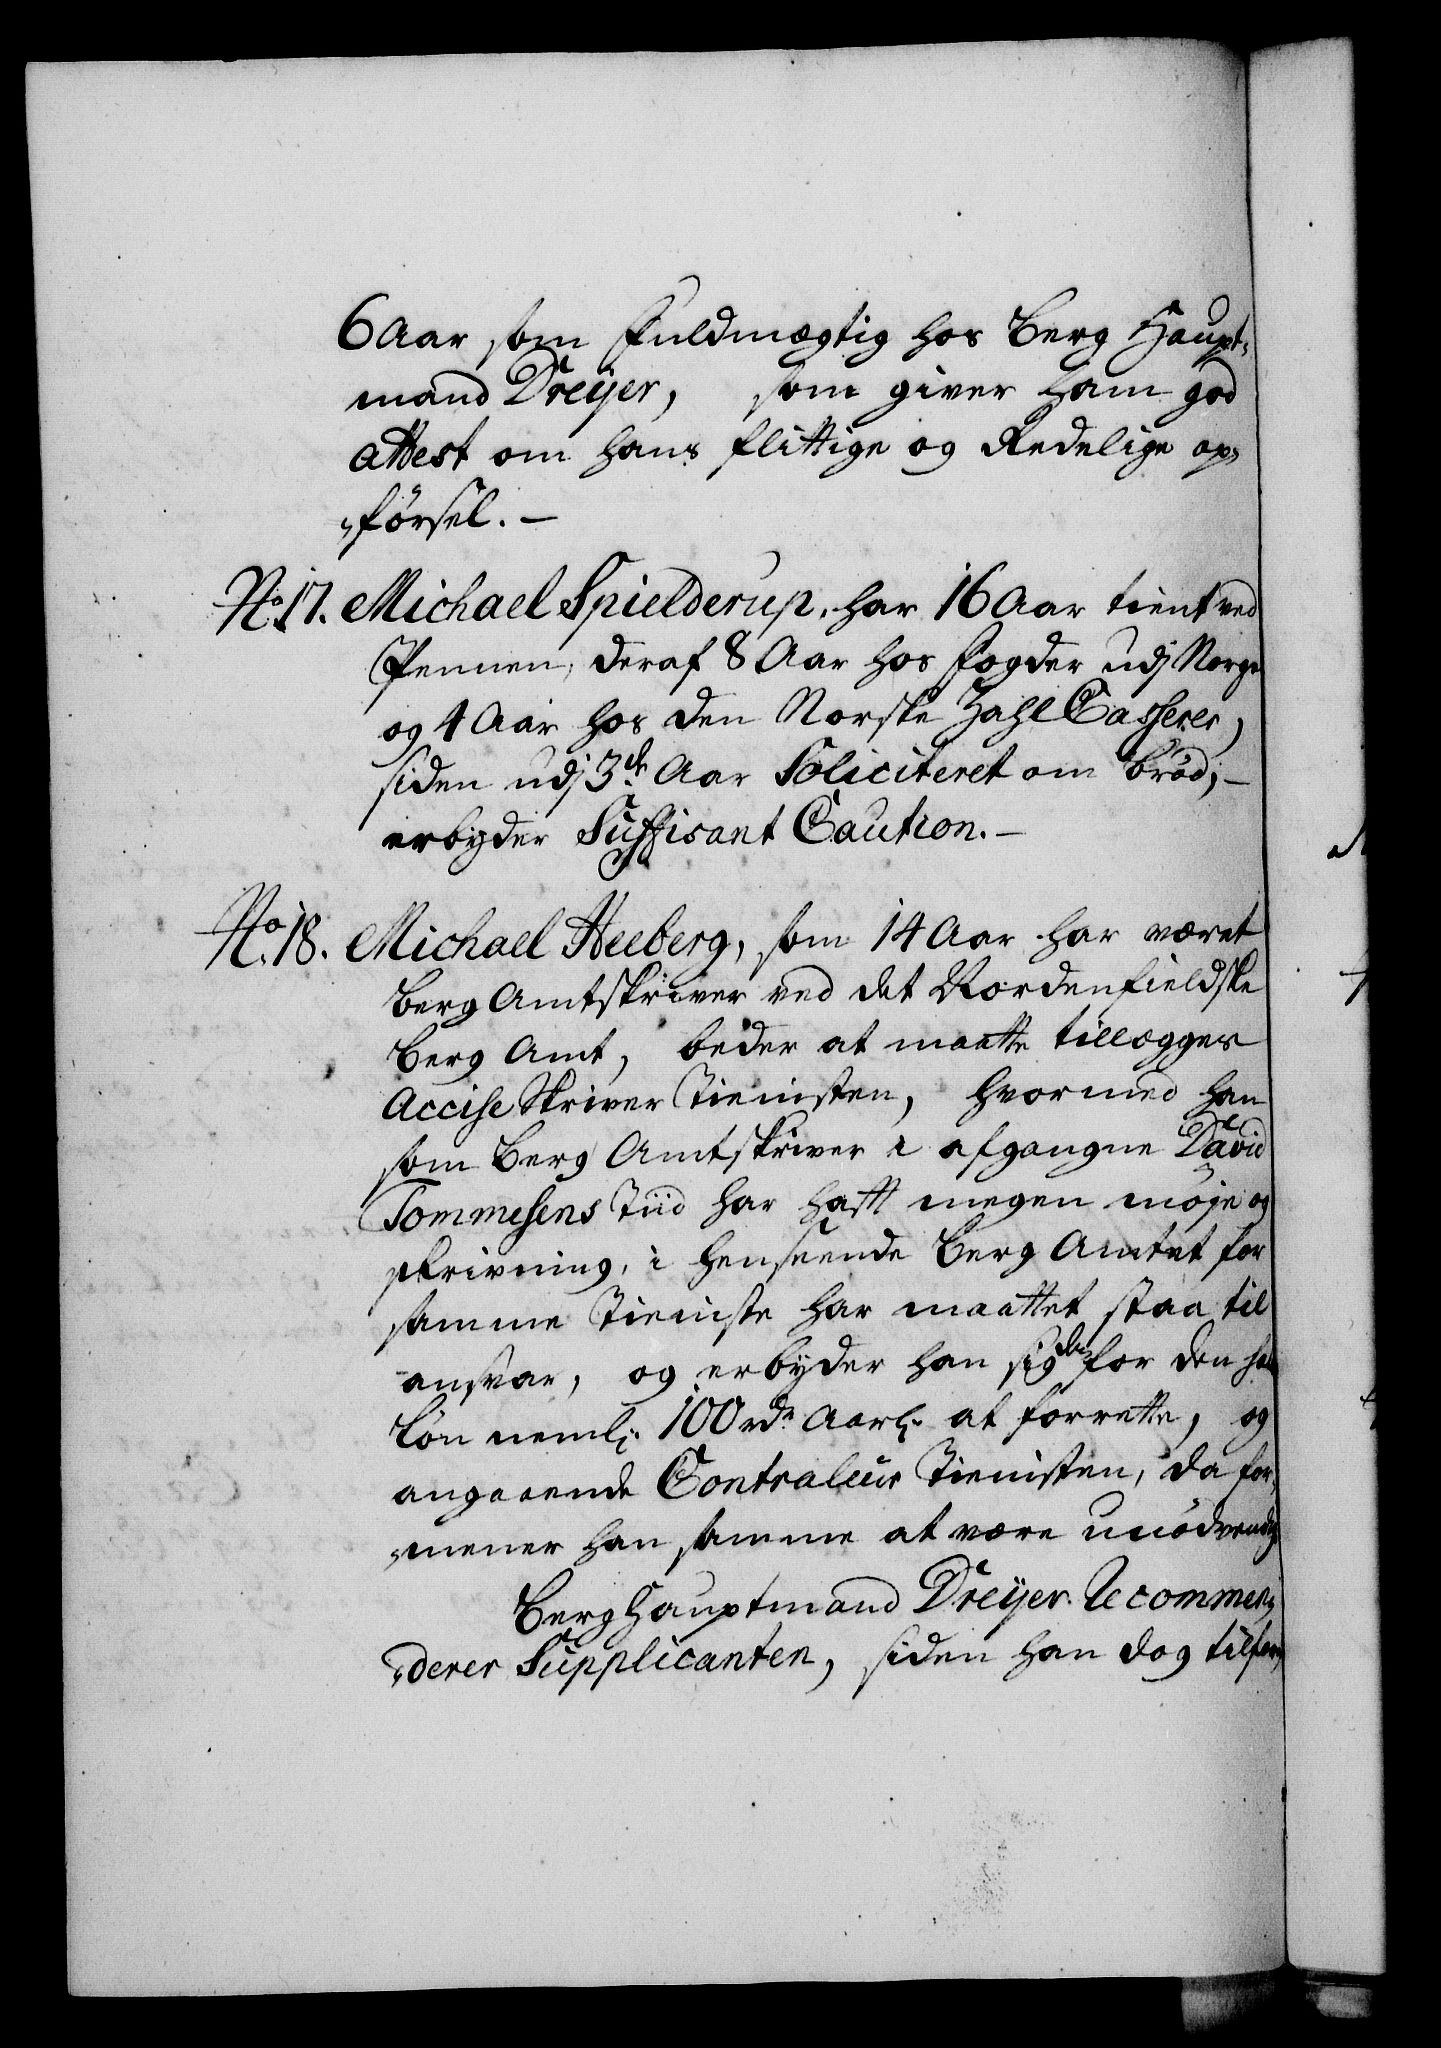 6 Aar som Fuldmægtig hos Berg Haupt-
mand Dreÿer, som giver ham god
attest om hans flittige og Redelige op-
-førsel. -
No. 17. Michael Spielderup, har 16 Aar tient ved
Pennen, deraf 8 Aar hos Fogder udj Norge
og 4 Aar hos den Norske Zahl Casserer,
siden udj 3de Aar Soliciteret om brød, -
erbyder Suffisant Caution. -
No. 18. Michael Heeberg, som 14 Aar har været
Berg Amtskriver ved det Nordenfieldske
Berg Amt, beder at maatte tillegges
Accise Skriver Tienisten, hvormed han
som Berg Amtskriver i afgangne David
Tommesens Tiid har hafft megen møje og
skrivning, i henseende Berg Amtet for
samme Tieniste har maattet staa til
ansvar, og erbyder han sig den for den
Løn nemlig 100 rdr Aarl. at forrette, og
angaaende Contraleur Tienisten, da for-
-mener han samme at være unødvendig
Berg Hauptmand Dreÿer Recommen-
-derer Supplicanten, siden han dog tilforn